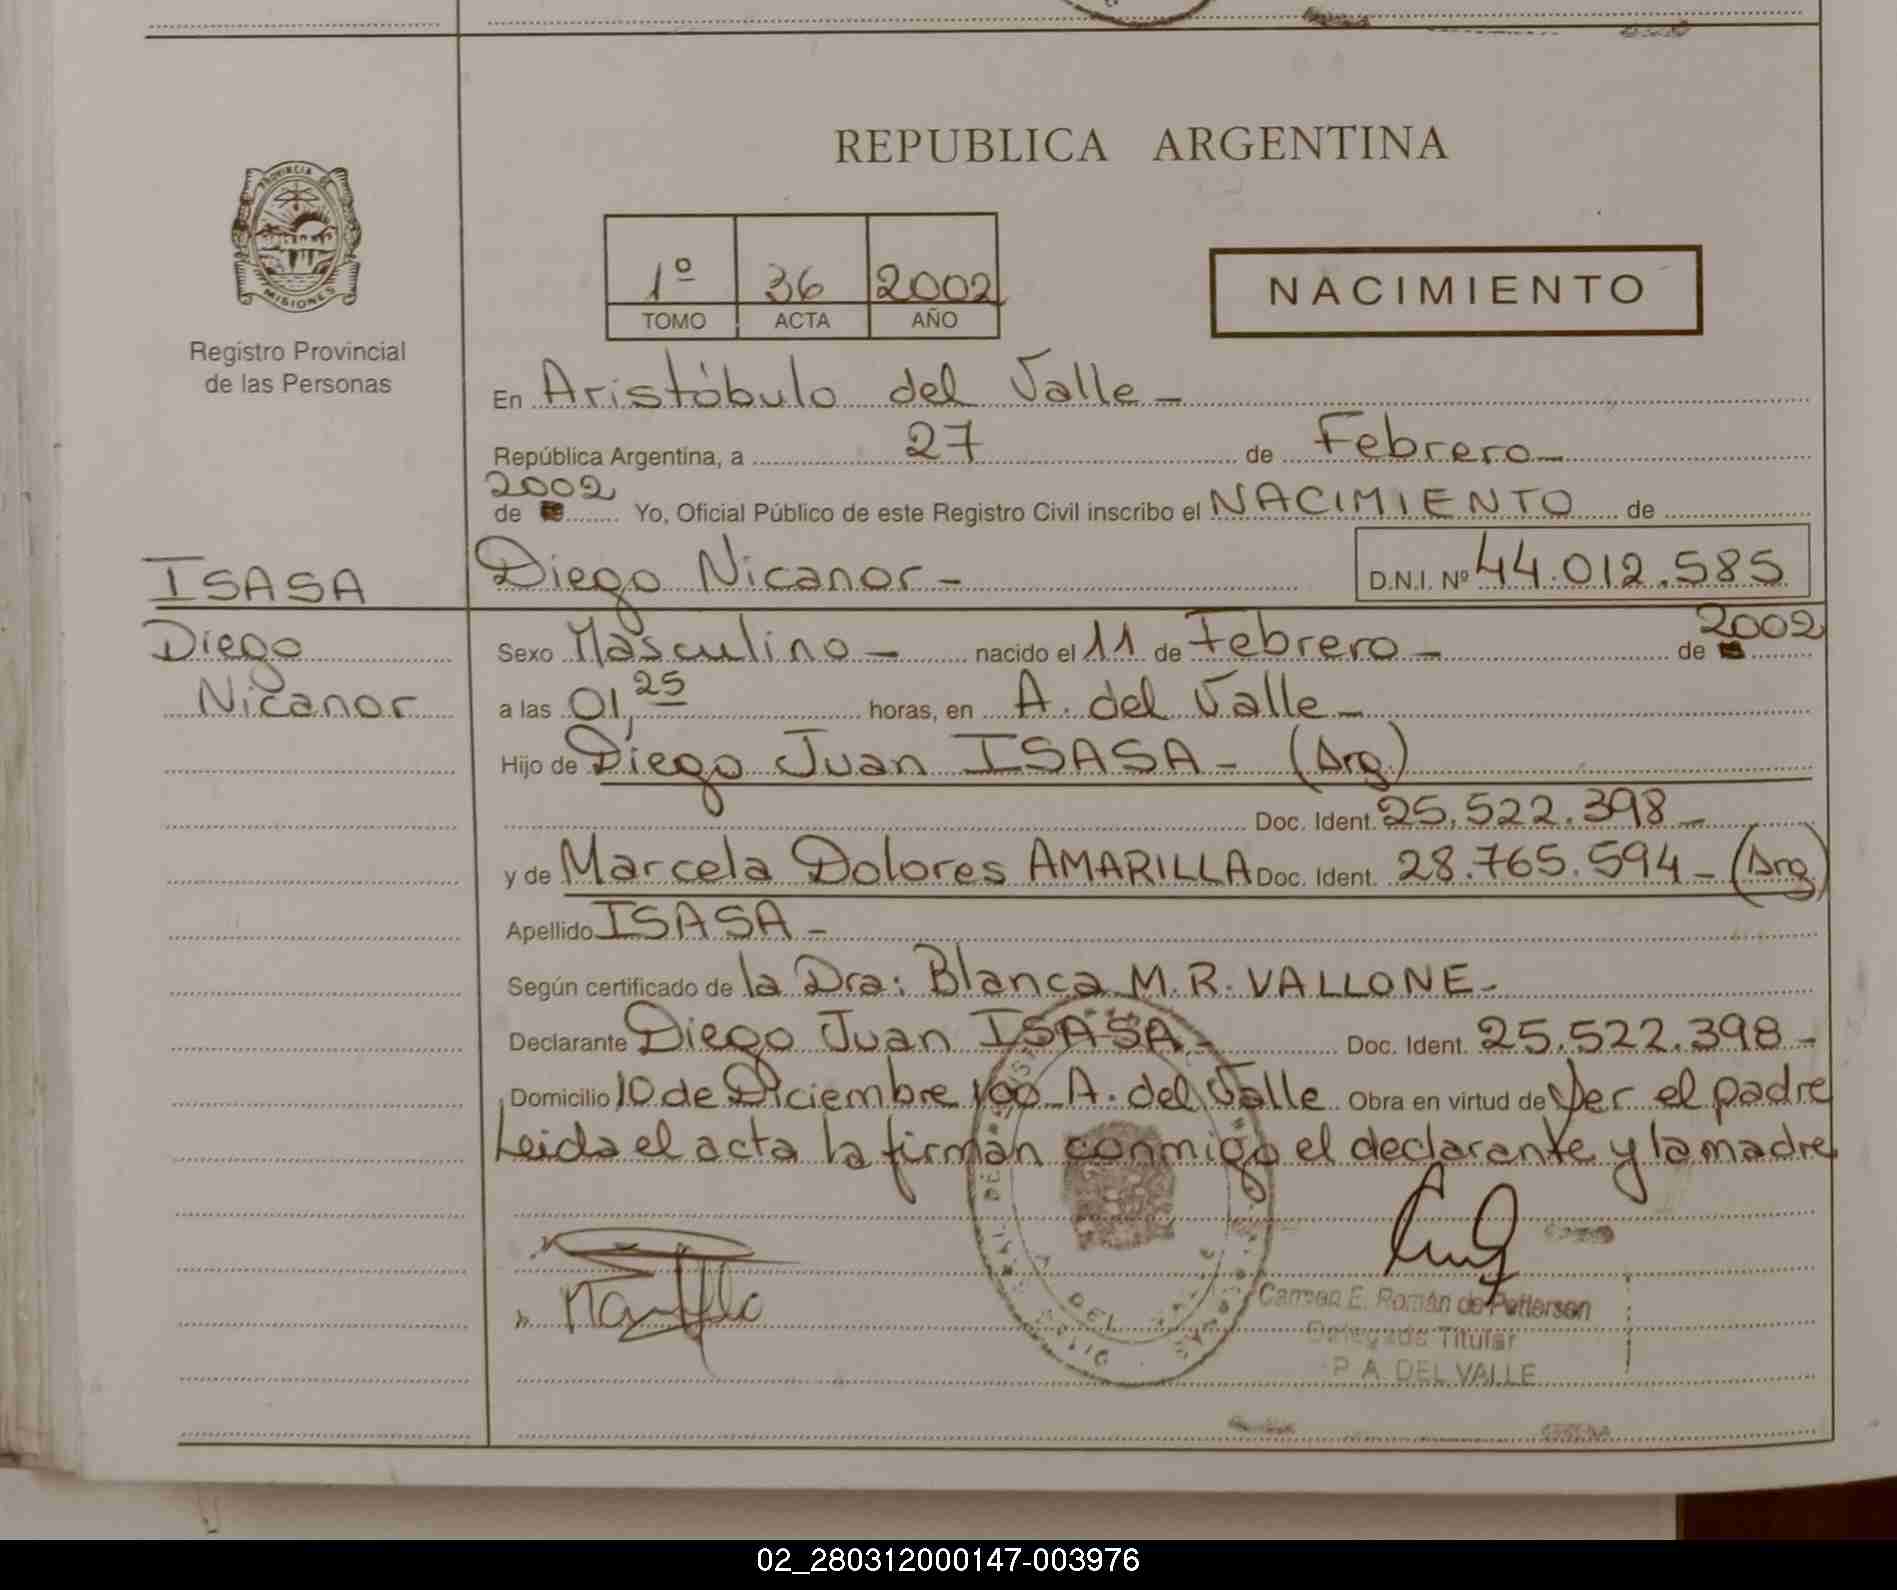 REPUBLICA ARGENTINA
PROVINCIA DE
MISIONES
Registro Provincial
de las Personas
1º 36 2002
TOMO ACTA AÑO
NACIMIENTO
En Aristóbulo del Valle -
República Argentina, a 27 de Febrero -
2002
de Yo, Oficial Público de este Registro Civil inscribo el NACIMIENTO de
ISASA
Diego Nicanor
Diego Nicanor - D.N.I. Nº 44.012.585
Sexo Masculino - nacido el 11 de Febrero - de 2002
a las 01,25 horas, en A. del Valle -
Hijo de Diego Juan ISASA - (Arg)
Doc. Ident. 25.522.398 -
y de Marcela Dolores AMARILLA Doc. Ident. 28.765.594 - (Arg)
Apellido ISASA -
Según certificado de la Dra: Blanca M.R. VALLONE -
Declarante Diego Juan ISASA - Doc. Ident. 25.522.398 -
Domicilio 10 de Diciembre 100 A. del Valle Obra en virtud de Ser el padre
Leida el acta la firman conmigo el declarante y la madre
Carmen E. Román de Petterson
Delegada Titular
P. A. DEL VALLE
02_280312000147-003976